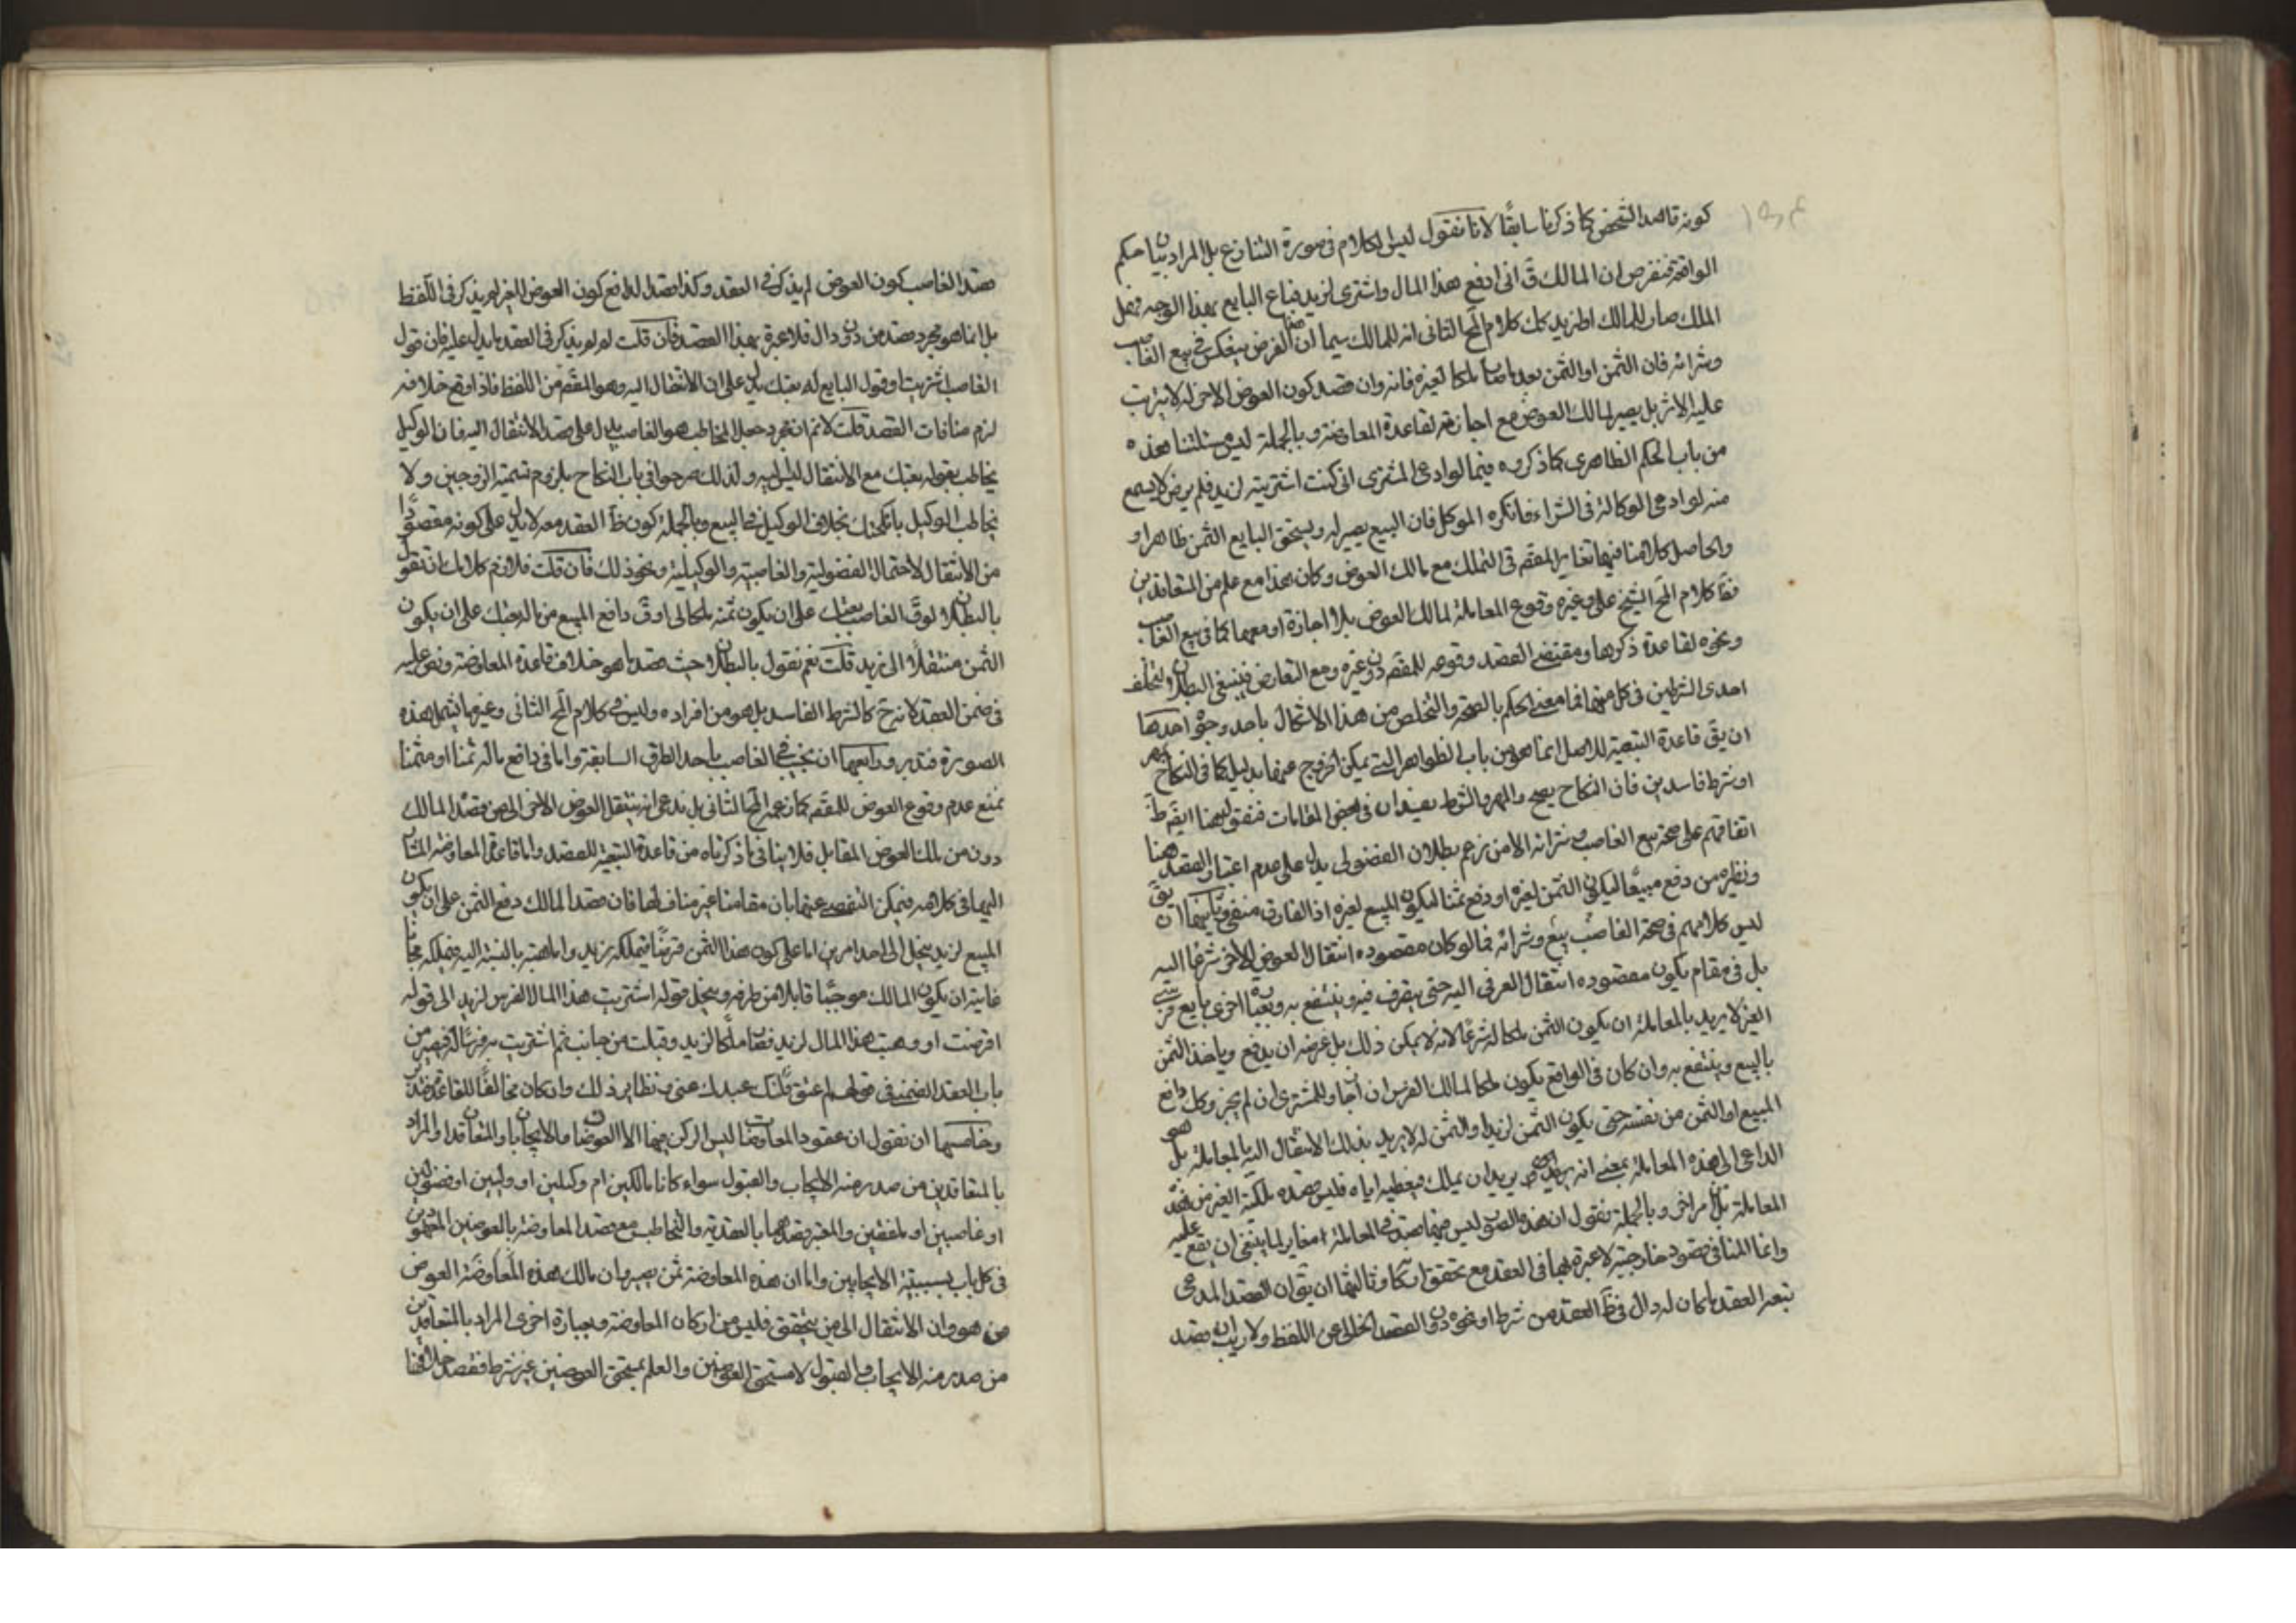 كونه قاصدا لشخص كما ذكرنا سابقًا لانا نقول ليس الكلام فى صورة التنازع بل المراد بيان حكم
الواقعة فنفرض ان المالك ق انى ادفع هذا المال واشترى لزيد فباع البايع بهذا الوجه فهل
الملك صار للمالك او لزيد كلام المح الثانى انه للمالك سيما ان الفرض ينعكس فى بيع الغاصب
وشرائه فان الثمن او المثمن بعد ما صار ملكا لغيره فانه وان قصد كون العوض الاخر له لا يترتب
عليه الاثر بل يصير لمالك العوض مع اجازته لقاعدة المعاوضة وبالجملة ليس مسئلتنا هذه
من باب الحكم الظاهرى كما ذكروه فيما لو ادعى المشترى انى كنت اشتريته لزيد فلم يرض لا يسمع
منه لو ادعى الوكالة فى الشراء فانكره الموكل فان البيع يصير له ويستحق البايع الثمن ظاهرا و
والحاصل كلامنا فيما تغاير المقصد فى التملك مع مالك العوض وكان هذا مع علم من المتعاقدين
كلام المح الشيخ على وغيره وقوع المعاملة لمالك العوض بلا اجازة او معها كما فى بيع الغاصب
ونحوه لقاعدة ذكرها ومقتضى القصد وقوعه للمقصد دون غيره ومع التعارض فينبغى البطلان لتخلف
احدى الشرطين فى كل منهما فما معنى الحكم بالصحة والتخلص من هذا الاشكال باحد وجوه احدها
ان يق قاعدة التبعية للاصل انما هو من باب الظواهر التى يمكن الخروج عنها بدليل كما فى النكاح بمهر
او شرط فاسدين فان النكاح يصح والمهر والشرط يفسدان فى بعض المقامات فنقول هنا ايضًا
اتفاقهم على صحة بيع الغاصب وشرائه الا من زعم بطلان الفضولى يدل على عدم اعتبار القصد هنا
ونظيره من دفع مبيعًا ليكون الثمن لغيره او دفع ثمنا ليكون المبيع لغيره اذ الفارق منفى وثانيهما ان يق
ليس كلامهم فى صحة الغاصب بيع وشرائه فيما لو كان مقصوده انتقال العوض الاخر شرعًا اليه
بل فى مقام يكون مقصوده انتقال العرفى اليه حتى يتصرف فيه وينتفع به وبعبارة اخرى بايع فرس
الغير لا يريد بالمعاملة ان يكون الثمن ملكا له شرعًا لانه لا يمكن ذلك بل غرضه ان يدفع وياخذ الثمن
بالبيع وينتفع به وان كان فى الواقع يكون ملكا لمالك الفرس ان اجاز وللمشترى ان لم يجز وكل دافع
المبيع او الثمن من نفسه حتى يكون الثمن لزيد او المثمن له لا يريد بذلك الانتقال اليه بالمعاملة بل
الداعى الى هذه المعاملة بمعنى انه يريد ان يملك فيعطيه اياه فليس قصده ملكية الغير من هذه
المعاملة بل تراخى وبالجملة نقول ان هذه الصور ليس فيها قصد فى المعاملة مغاير لما ينبغى ان يقع عليه
وانما المنافى قصود خارجية لا عبرة بها فى العقد مع تحقق اركانه وثالثها ان يق ان القصد المدعى
تبعه العقد ما كان له دال فى ظ العقد من شرط او نحوه دون القصد الخالى عن اللفظ ولا ريب ان قصد
قصد الغاصب كون العوض لم يذكر فى العقد وكذا قصد الدافع كون العوض للغير لم يذكر فى اللفظ
بل انما هو مجرد قصد من دون دال فلا عبرة بهذا القصد فان قلت لم لم يذكر فى العقد ما يدل عليه فان قول
الغاصب اشتريت او قول البايع له بعتك يدل على ان الانتقال اليه وهو المفهم من اللفظ فاذا وقع خلافه
لزم منافات القصد قلت لا نم ان مجرد جعل المخاطب هو الغاصب يدل على قصد الانتقال اليه فان الوكيل
يخاطب بقوله بعتك مع الانتقال ليس اليه ولذلك صرحوا فى باب النكاح بلزوم تسمية الزوجين ولا
يخاطب الوكيل بانكحتك بخلاف الوكيل فى البيع وبالجملة كون ظ العقد معه لا يدل على كونه مقصودًا
من الانتقال لاحتمال الفضولية والغاصبية والوكيلية ونحو ذلك فان قلت فلازم كلامك ان تقول
بالبطلان لو ق الغاصب بعتك على ان يكون ثمنه ملكا لى او ق دافع المبيع من ماله بعتك على ان يكون
الثمن منتقلًا الى زيد قلت نعم نقول بالبطلان حيث قصد ما هو خلاف قاعدة المعاوضة ونص عليه
فى ضمن العقد لانه ح كالشرط الفاسد بل هو من افراده وليس فى كلام المح الثانى وغيره ما يشمل هذه
الصورة فتدبر ورابعها ان نجيب فى الغاصب باحد الطرق السابقة واما فى دافع ماله ثمنا او مثمنا
نمنع عدم وقوع العوض للمقصد كما زعمه المح الثانى بل ندعى انه ينتقل العوض الاخر الى من قصد المالك
دون من ملك العوض المقابل فلا ينافى ما ذكرناه من قاعدة التبعية للقصد واما قاعدة المعاوضة المشار
اليها فى كلامه فيمكن التفصى عنها بان مقامنا غير مناف لها فان قصد المالك دفع الثمن على ان يكون
المبيع لزيد ينحل الى احد امرين اما على كون هذا الثمن قرضًا فيملكه زيد واما هبة بالنسبة اليه فيملكه مجانًا
غايته ان يكون المالك موجبًا قابلا من طرفه وينحل قوله اشتريت هذا المال الفرس لزيد الى قوله
اقرضت او وهبت هذا المال لزيد فصار ملكًا لزيد وقبلت من جانبه ثم اشتريت به فرسًا له فهو من
باب العقد الضمنى فى قولهم اعتق عبدك عنى ونظاير ذلك وان كان مخالفًا للقاعدة فتدبر
وخامسها ان نقول ان عقود المعاوضات ليس الركن فيها الا العوضان والايجابان والمتعاقدان والمراد
بالمتعاقدين من صدر منه الايجاب والقبول سواء كانا مالكين ام وكيلين او وليين او فضوليين
او غاصبين او ملفقين والمعتبر قصدهما بالعقدية والتخاطب مع قصد المعاوضة بالعوضين المعهودين
فى كل باب بسببية الايجابين واما ان هذه المعاوضة ثمن يصير وان مالك هذه المعاوضة العوض
من هو وان الانتقال الى من يتحقق فليس من اركان المعاوضة وبعبارة اخرى المراد بالمتعاقدين
من صدر منه الايجاب والقبول لا مستحق العوضين والعلم بمستحق العوضين غير شرط فقصد خلافها